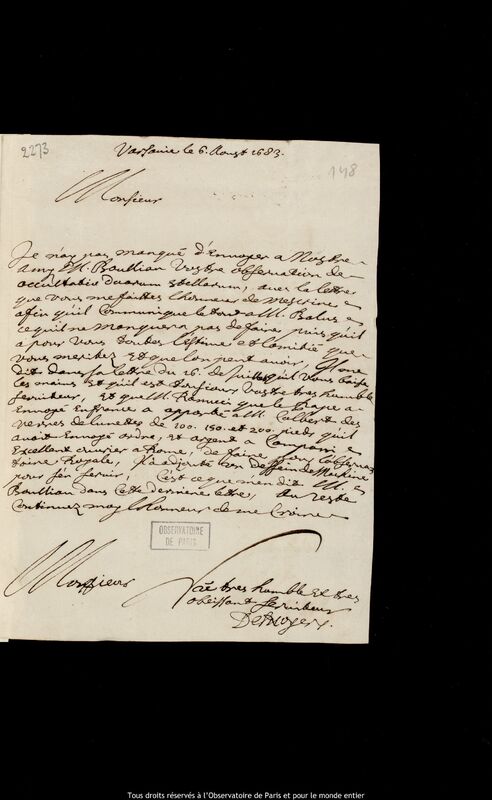 2273
148
Varsavie le 6. Aoust 1683.
Monsieur
Je n'ay pas manqué d'Envoyer a Nostre
amy M. Boullian Vostre observation de
occultatio duarum stellarum, avec la lettre
que vous me faittes l'honneur de m'escrire
afin qu'il Communique le tout a M. Balus
ce qu'il ne manquera pas de faire puis qu'il
a pour vous toutes l'estime et l'amitié que
vous meritez Et que l'on peut avoir. Il me
dit dans sa lettre du 16. de Juillet qu'il vous baise
les mains Et qu'il est tousjours Vostre tres humble
serviteur, Et que M. Ranucci que le Pape a
Envoyé En france a apporté a M. Colbert des
verres de lunettes de 100. 150. et 200. pieds, qu'il
avoit Envoyé ordre, Et argent a Campani
Excellent ouvrier a Rome, de faire pour l'observa
toire Royale, J'ai adjouté un dessein de Machine
pour s'en servir, C'est ce que m'en dit M.
Boullian dans cette derniere lettre, Au reste
Continuez moy l'honneur de me Croire
OBSERVATOIRE
DE PARIS
Monsieur
Vostre tres humble Et tres
obeissant serviteur
DesNoyers.
Tous droits réservés à l'Observatoire de Paris et pour le monde entier